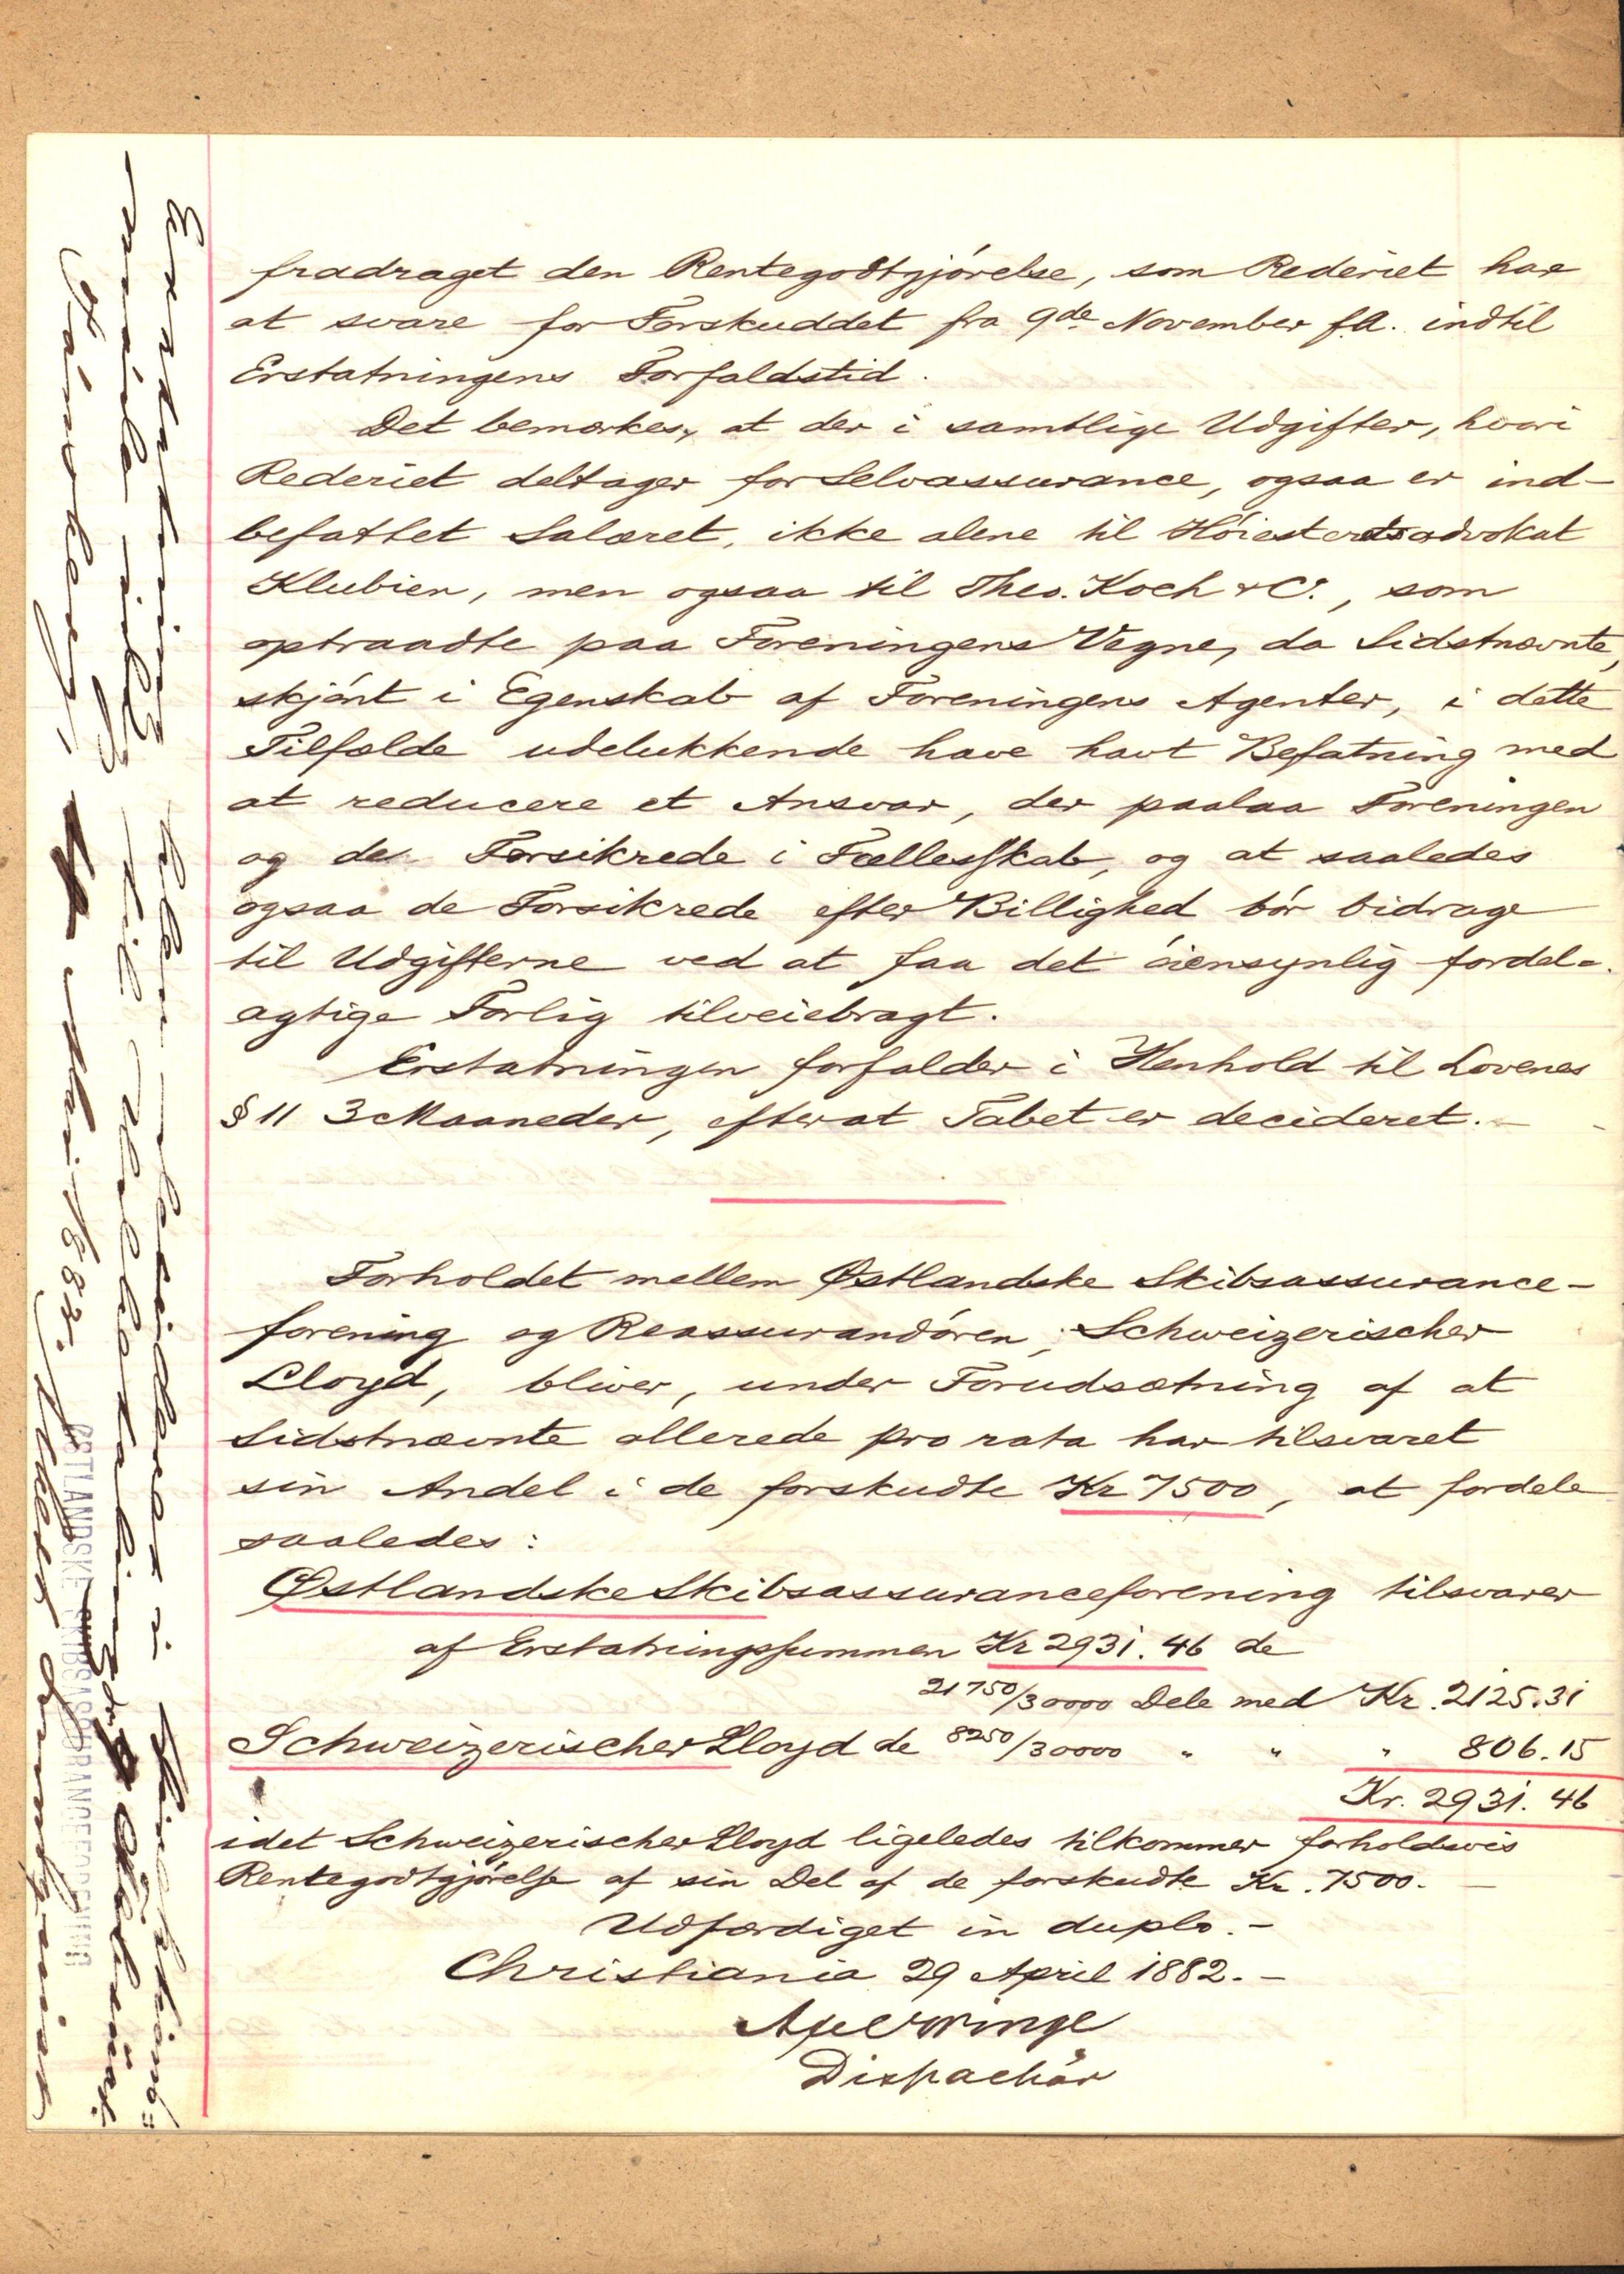 fradraget den Rentegodtgjörelse, som Rederiet har
at svare for Forskuddet fra 9de November f.A. indtil
Erstatningens Forfaldstid.
Det bemærkes, at der i samtlige Udgifter, hvori
Rederiet deltager for Selvassurance, ogsaa er ind-
befattet Salæret, ikke alene til Höiesteretsadvokat
Klubien, men ogsaa til Theo. Koch & Co., som
optraadte paa Foreningens Vegne, da Sidstnævnte,
skjönt i Egenskab af Foreningens Agenter, i dette
Tilfælde udelukkende have havt Befatning med
at reducere et Ansvar, der paalaa Foreningen
og de Forsikrede i Fællesskab, og at saaledes
ogsaa de Forsikrede efter Billighed bör bidrage
til Udgifterne ved at faa det öiensynlig fordel-
agtige Forlig tilveiebragt.
Erstatningen forfalder i Henhold til Lovenes
§ 11 3 Maaneder, efterat Tabet er decideret.-
Forholdet mellem Østlandske Skibsassurance-
forening og Reassurandören, Schweizerischer
Lloyd, bliver, under Forudsætning af at
Sidstnævnte allerede pro rata har tilsvaret
sin Andel i de forskudte Kr 7500, at fordele
saaledes:
Østlandske Skibsassuranceforening tilsvarer
af Erstatningssummen Kr 2931.46 de
21750/30000 Dele med Kr. 2125.31
Schweizerischer Lloyd de 8250/30000 " " " 806.15
Kr. 2931.46
idet Schweizerischer Lloyd ligeledes tilkommer forholdsvis
Rentegodtgjörelse af sin Del af de forskudte Kr. 7500.-
Udfærdiget in duplo.-
Christiania 29 April 1882.-
Axel Winge
Dispachör
Erstatningen bliver
til
Mai 1882.
ØSTLANDSKE SKIBSASSURANCEFORENING